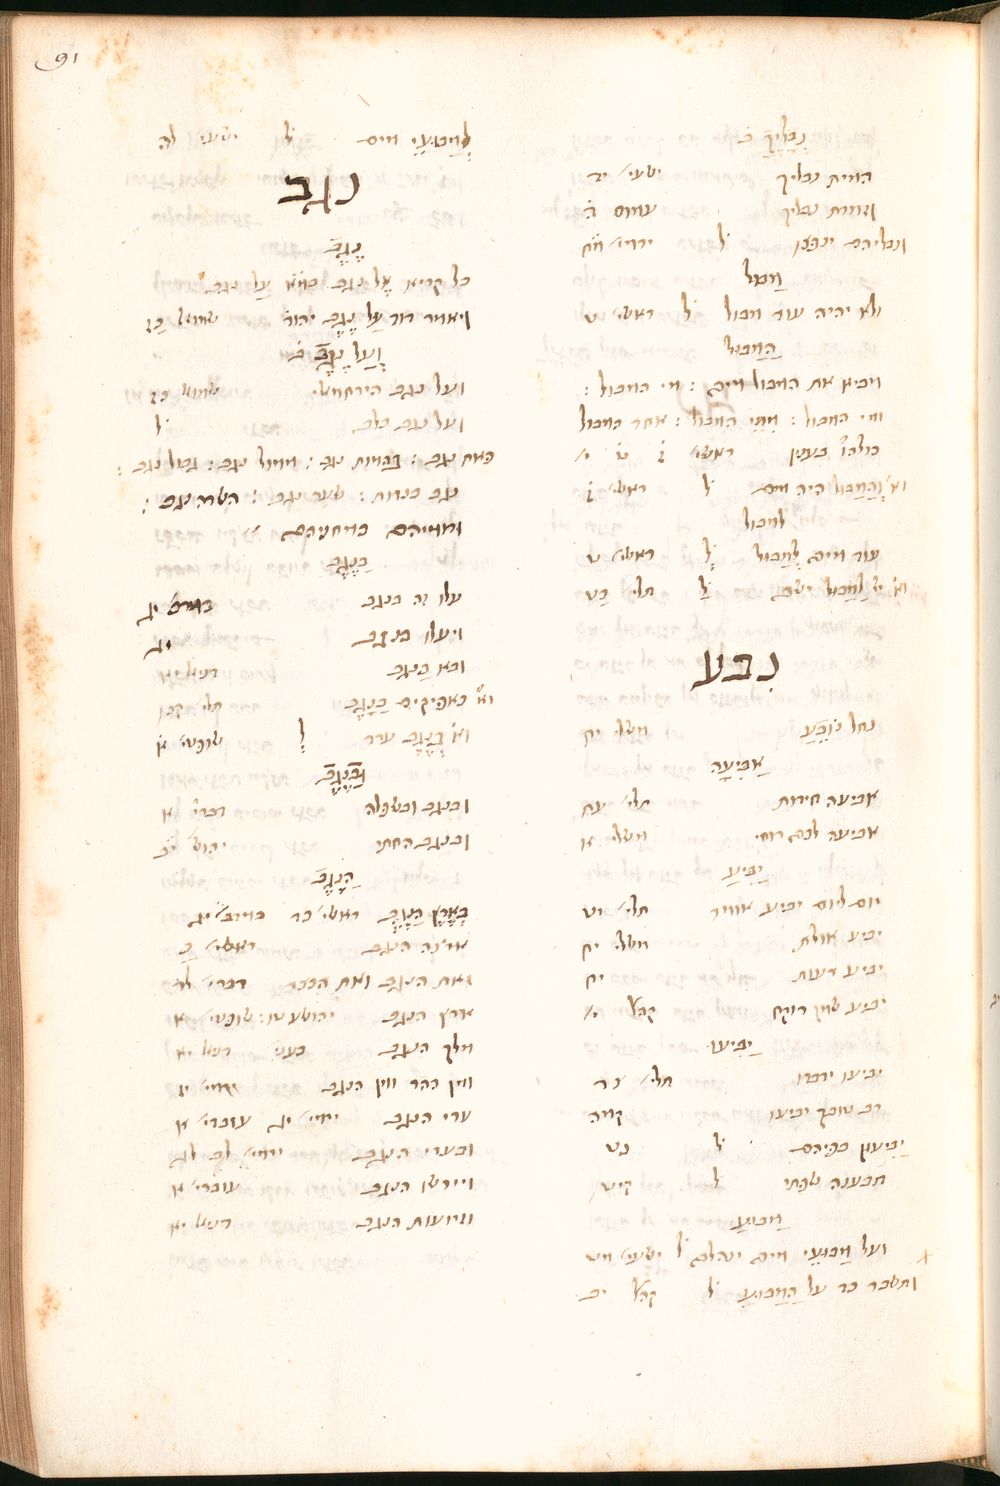 91
נְבָלֶיךָ ב
המית נבליך ישעי׳ יד
וזמרת נבליך עמוס ה
ונבליהם ינפצו ל ירמי׳ מח
מַבּוּל
ולא יהיה עוד מבול ל ראשי׳ ט
הַמַּבּוּל
מביא את המבול מים : מי המבול :
ומי המבול : מִמֵּי המבול : אחר המבול
כולהו בענין ראשי׳ ז ט י׳
וא׳ וְהַמַּבּוּל היה מים ל ראשי׳ ז
למבול
עוד מים לְמַבּוּל ל ראשי׳ ט
וא׳ יי׳ לַמַּבּוּל ישב ל תלי׳ כט
נבע
נחל נוֹבֵעַ משלי יח
אַבִּיעָה
אביעה חידות תלי׳ עח
אביעה לכם רוחי משלי א
יַבִּיעַ
יום ליום יביע אומר תלי׳ יט
יביע אולת משלי יח
יביע רעות יח
יביע שמן רוקח קהל׳ י׳
יַבִּיעוּ
יביעו ידברו תלי׳ צד
רב טובך יביעו קמה
יַבִּיעוּן בפיהם ל נט
תבענה שפתי ל קיט
מַבּוּעַ
ועל מַבּוּעֵי מים ינהלם ל ישעי׳ מט
ותשבר כד על הַמַּבּוּעַ ל קהל׳ יב
לְמַבּוּעֵי מים ל ישעי׳ לה
נגב
נֶגֶב
כל קריא אֶל נגב
ויאמר דוד עַל נֶגֶב יהודה שמואל כז
וְעַל נֶגֶב ב
ועל נגב הירחמאלי שמואל כז
ועל נגב כלב ל
פאת נגב : בהמות נגב : ממול נגב : גבול נגב :
נגב כנרות : שער נגב : השדה נגב :
ומוציהם כמוצאיהם
בַּנֶּגֶב
עלו זה בנגב במדב׳ יג
ויעלו בנגב יג
ובא בַנגב דניאל יא
וא׳ כאפיקים בַּנֶּגֶב תלי׳ קכו
וא׳ בְּנֶגֶב ערד ל שופטי׳ א
וּבַנֶּגֶב
ובנגב ובשפלה דברי׳ א
ובנגב החתי יהוש׳ יב
הַנֶּגֶב
בְּאֶרֶץ הַנֶּגֶב ראשי׳ כד במדב׳ יג
ארצה הנגב ראשי׳ כ
ואת הנגב ואת הככר דברי׳ לד
ארץ הנגב יהושע טו : שופטי׳ א
מלך הנגב בעני׳ דניאל יא
ומן ההר ומן הנגב ירמי׳ יז
ערי הנגב ירמי׳ יג עובדי׳ א
ובערי הנגב ירמי׳ לב לג
ויירשו הנגב עובדי׳ א
וזרועות הנגב דניאל יא